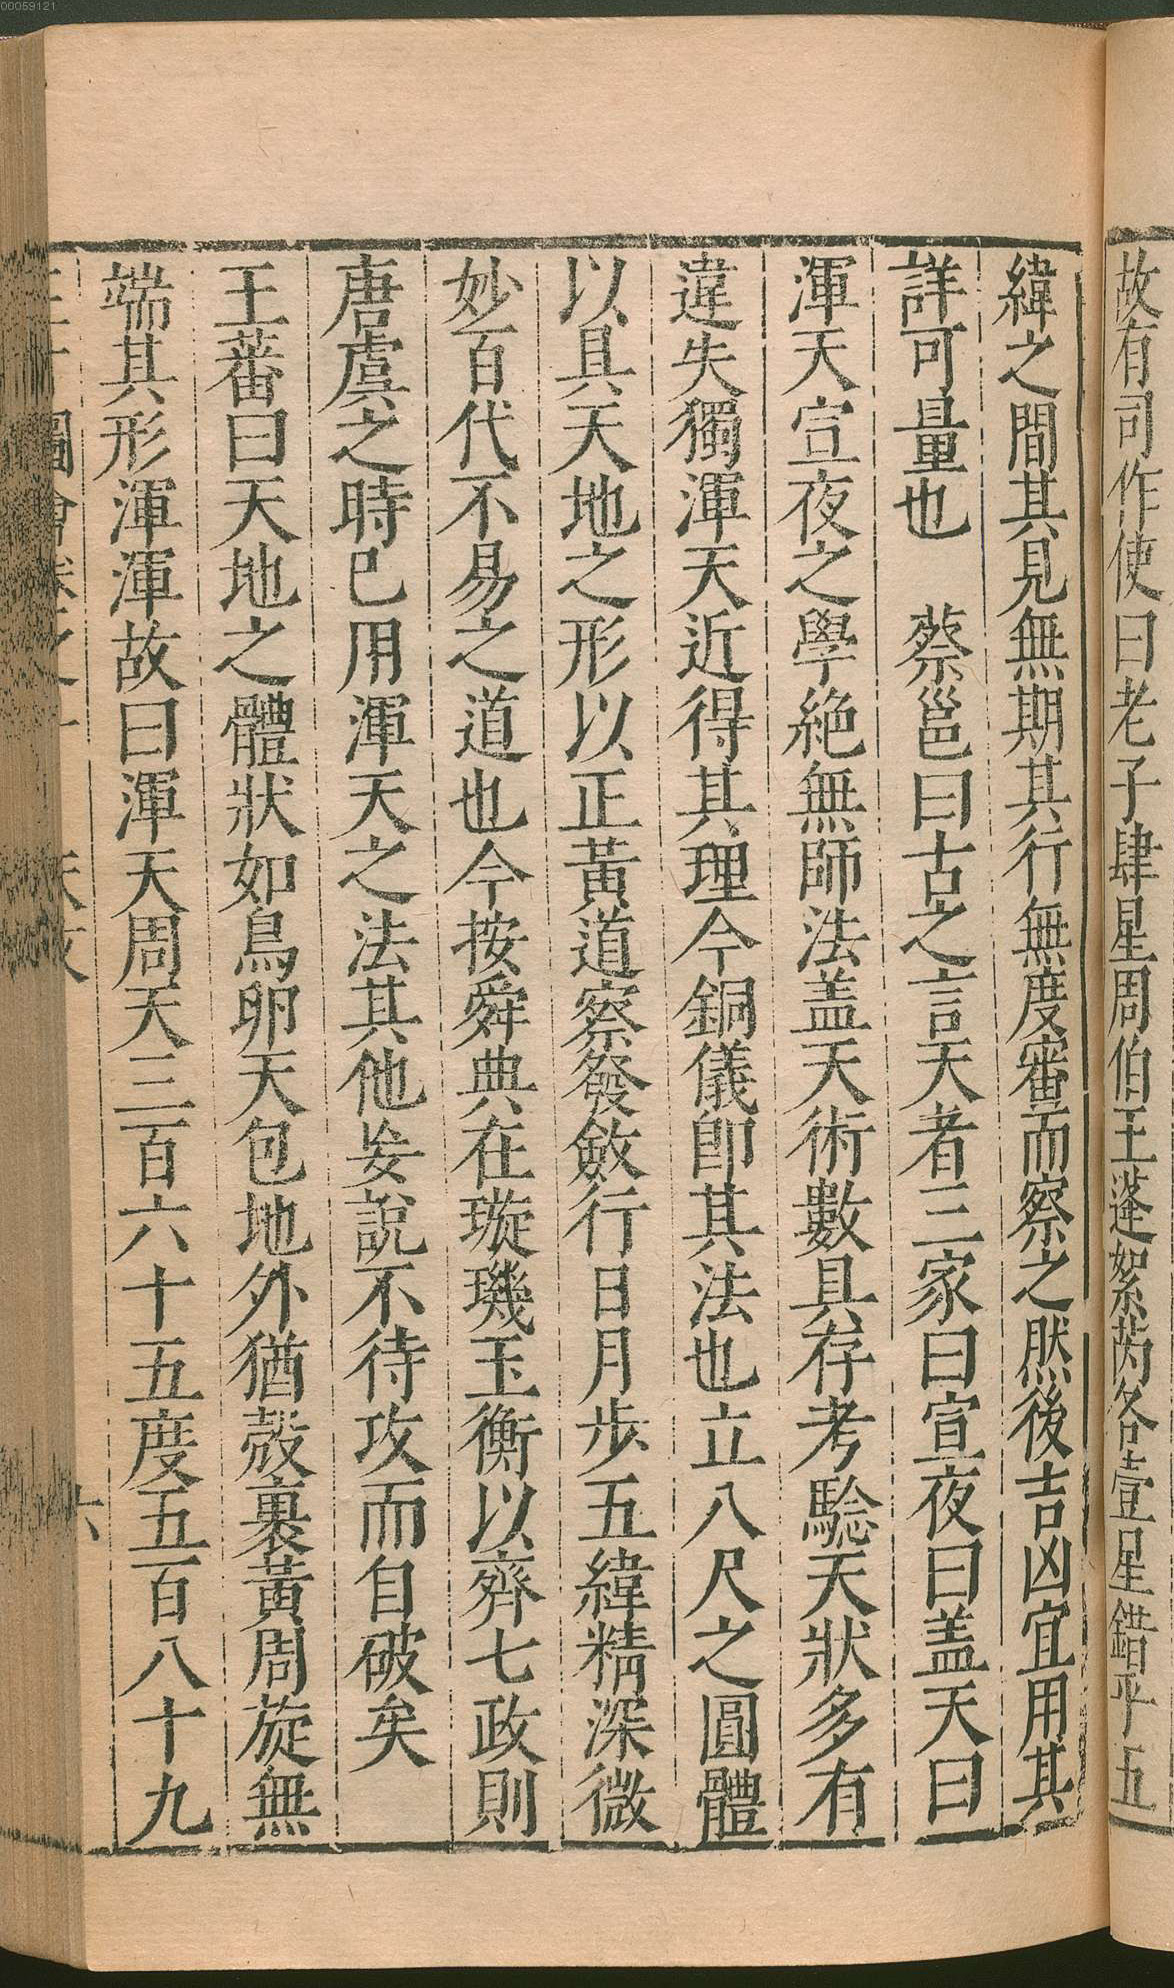 00059121
故有司作使曰老子肆星周伯王蓬絮芮各壹星錯乎五
緯之間其見無期其行無度審而察之然後吉凶宜用其
詳可量也　蔡邕曰古之言天者三家曰宣夜曰盖天曰
渾天宣夜之學絶無師法盖天術數具存考騐天狀多有
違失獨渾天近得其理今銅儀卽其法也立八尺之圓體
以具天地之形以正黃道察發斂行日月步五緯精深微
妙百代不易之道也今按舜典在璇璣玉衡以齊七政則
唐虞之時已用渾天之法其他妄說不待攻而自破矣
王蕃曰天地之體狀如鳥卵天包地外猶殼裹黃周旋無
端其形渾渾故曰渾天周天三百六十五度五百八十九
圖會卷之一 天文 六